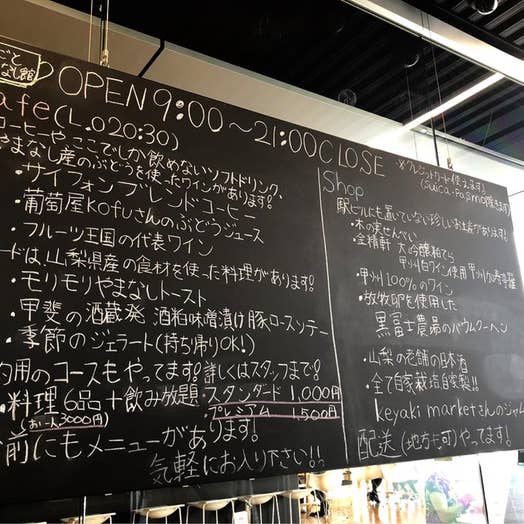 ごと
なし館
OPEN 9:00～21:00 CLOSE
afe (L.O 20:30)
コーヒーや、ここでしか飲めないソフトドリンク、
やまなし産のぶどうを使ったワインがあります！
・サイフォンブレンドコーヒー
・葡萄屋Kofuさんのぶどうジュース
・フルーツ王国の代表ワイン
ードは、山梨県産の食材を使った料理があります！
・モリモリやまなしトースト
・甲斐の酒蔵発 酒粕味噌漬け豚ロースソテー
・季節のジェラート(持ち帰りOK!)
約用のコースもやってます。詳しくはスタッフまで！
・料理6品＋飲み放題
(お一人3000円)
スタンダード 1,000円
プレミアム 1,500円
前にもメニューがあります！
気軽にお入り下さい!!
※クレジットカード使えます！
(Suica・Pasmo
Shop
駅ビルにも置いていない珍しいお土産があります！
・木の実せんべい
・金精軒 大吟醸粕てら
甲州白ワイン使用 甲州
・甲州100%のワイン
・放牧卵を使用した
黒富士農場のバウムクーヘン
・山梨の老舗の日本酒
・全て自家栽培自家製!!
keyaki marketさんのジャム
配送(地方も可)やってます！